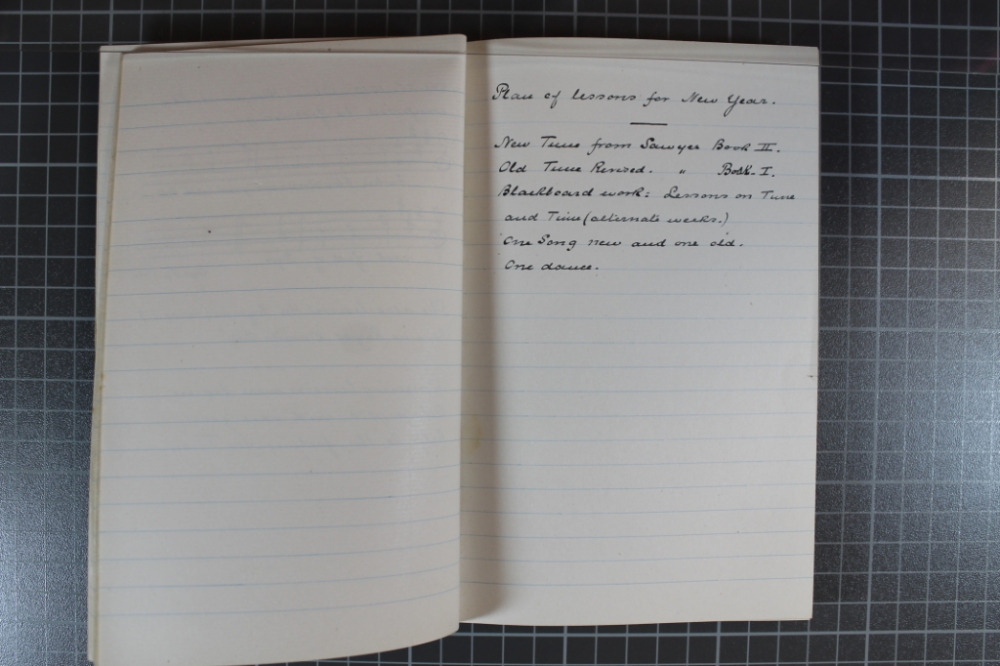 Plan of lessons for New Year.
New Tune from Sawyer Book II.
Old Tune Revised. " Book I.
Blackboard work: Lessons on Tune
and Time (alternate weeks.)
One Song new and one old.
One dance.